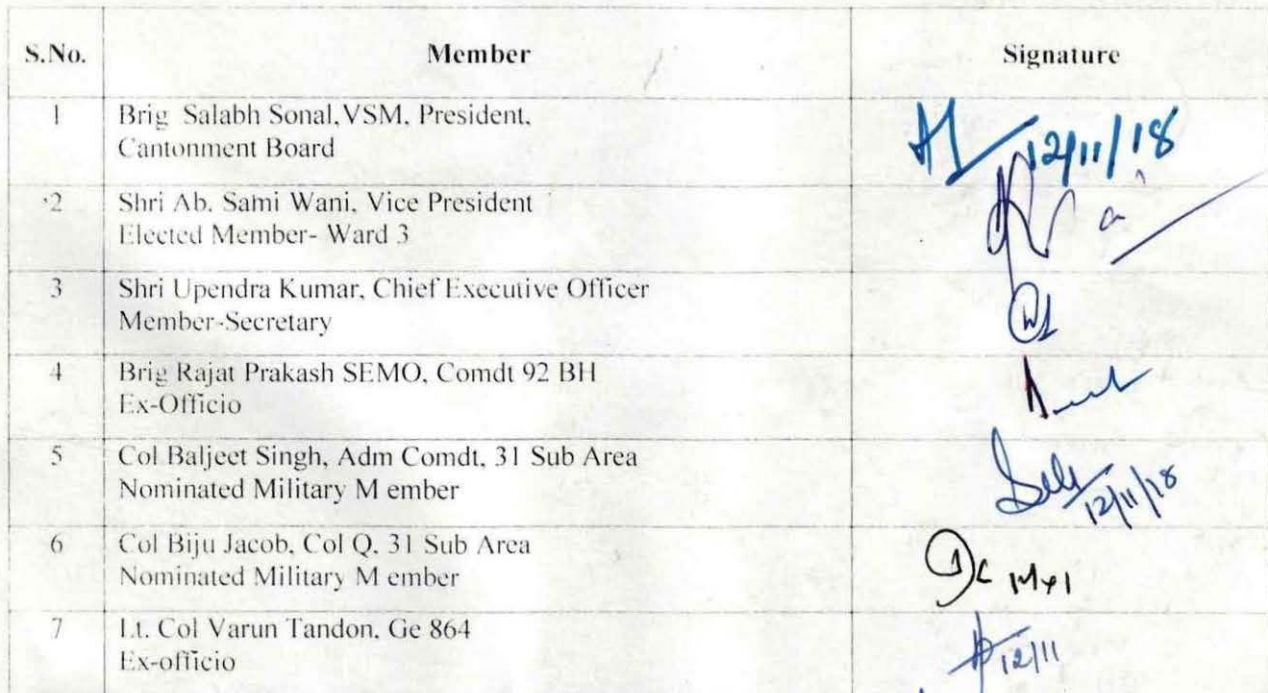 S.No. Member Signature
1 Brig Salabh Sonal,VSM, President,
Cantonment Board
12/11/18
2 Shri Ab. Sami Wani, Vice President
Elected Member- Ward 3
3 Shri Upendra Kumar, Chief Executive Officer
Member-Secretary
4 Brig Rajat Prakash SEMO, Comdt 92 BH
Ex-Officio
5 Col Baljeet Singh, Adm Comdt, 31 Sub Area
Nominated Military M ember
12/11/18
6 Col Biju Jacob, Col Q, 31 Sub Area
Nominated Military M ember
7 Lt. Col Varun Tandon, Ge 864
Ex-officio
12/11